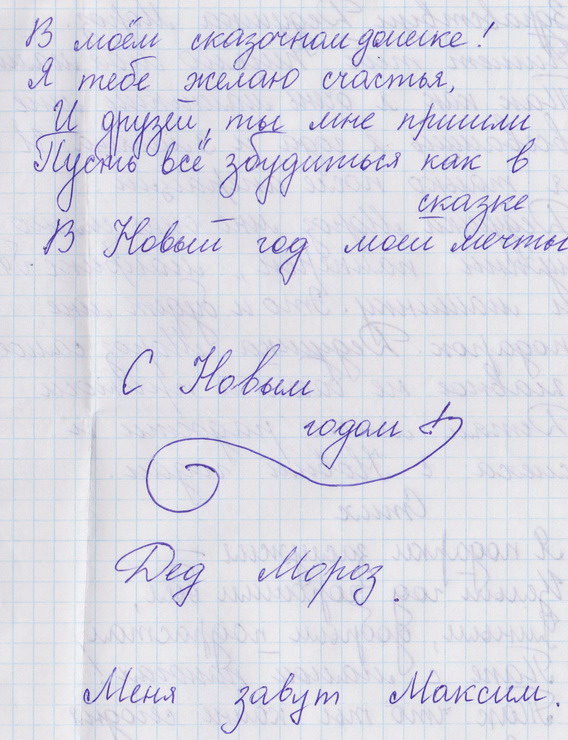 В моём сказочном домике!
Я тебе желаю счастья,
И друзей, ты мне пришли
Пусть всё збудиться как в
сказке
В Новый год моей мечты
С Новым
годом!
Дед Мороз.
Меня завут Максим.